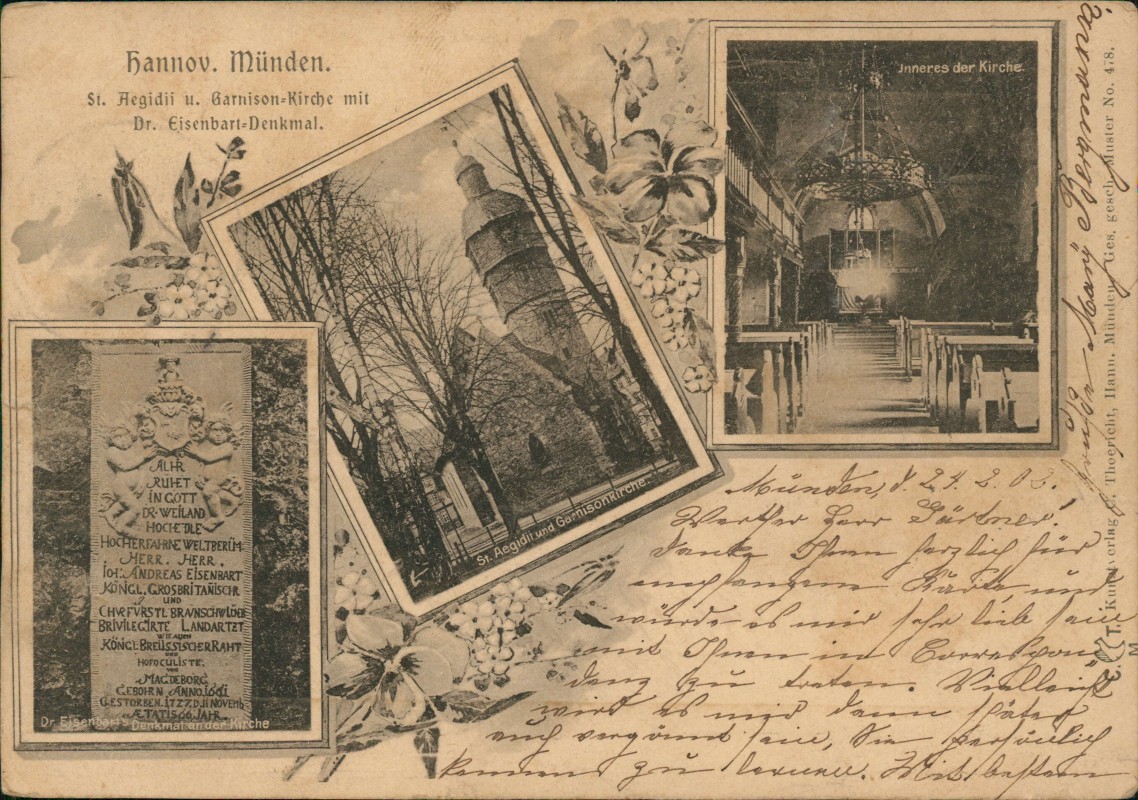 Hannov. Münden.
St. Aegidii u. Garnison-Kirche mit
Dr. Eisenbart-Denkmal.
Inneres der Kirche.
St. Aegidii und Garnisonkirche.
ALHR
RUHET
IN GOTT
DR. WEILAND
HOCHEDLE
HOCHERFAHNE WELTBERÜM
HERR. HERR.
IOH. ANDREAS EISENBART
KÖNIGL. GROSBRITANISCHR
UND
CHVRFVRSTL BRAVNSCHW LÜNB
BRIVILEGIRTE LANDARTZT
WIE AUCH
KÖNIGL BREUSSISCHER RAHT
UND
HOFOCULISTE.
VON
MAGDEBORG
GEBOHRN ANNO 1661
GESTORBEN. 1727. D. 11 NOVEMB
ÆTATIS 66 JAHR.
Dr. Eisenbart's Denkmal an der Kirche
Münden, d. 2.2.
Werther Herr Gärtner!
Danke Ihnen herzlich für
empfangene Karte, und
würde es mir sehr lieb sein
mit Ihnen in Correspon
denz zu treten. Vielleicht
wird es mir dann später
auch vergönnt sein, Sie persönlich
kennen zu lernen. Mit bestem
Gruße Mary Bergmann
Kunstverlag Thoericht, Hann. Münden. Ges. gesch. Muster No. 478.